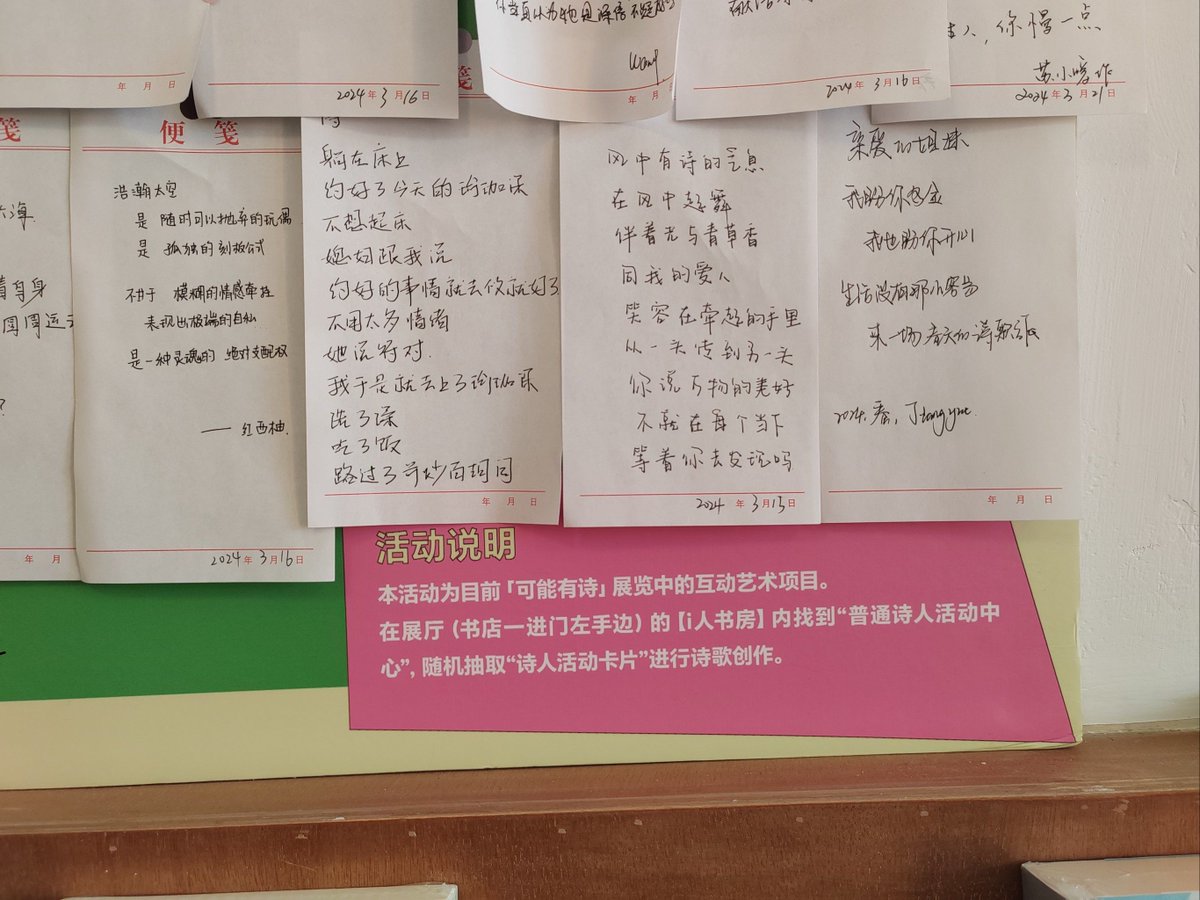 年 月 日
2024年3月16日
Wang
年 月 日
2024年3月16日
人，你慢一点
苏小 作
2024年3月21日
笺
年 月
便 笺
浩瀚太空
是 随时可以抛弃的玩偶
是 孤独的刻板公式
不甘于 模糊的情感牵挂
表现出极端的自私
是一种灵魂的 绝对支配权
—— 红西柚
2024年3月16日
躺在床上
约好了今天的瑜伽课
不想起床
媳妇跟我说
约好的事情就去做就好了
不用太多情绪
她说 对.
我于是就去上了瑜伽课
洗了澡
吃了饭
路过了 炒面胡同
年 月 日
风中有诗的气息
在风中起舞
伴着光与青草香
同我的爱人
笑容在牵起的手里
从一头传到另一头
你说万物的美好
不就在每个当下
等着你去发现吗
2024年3月15日
亲爱的姐妹
我盼你
我也盼你开心
生活没有那么
来一场 的诗歌
2024.春,
年 月 日
活动说明
本活动为目前「可能有诗」展览中的互动艺术项目。
在展厅（书店一进门左手边）的【i人书房】内找到“普通诗人活动中
心”，随机抽取“诗人活动卡片”进行诗歌创作。